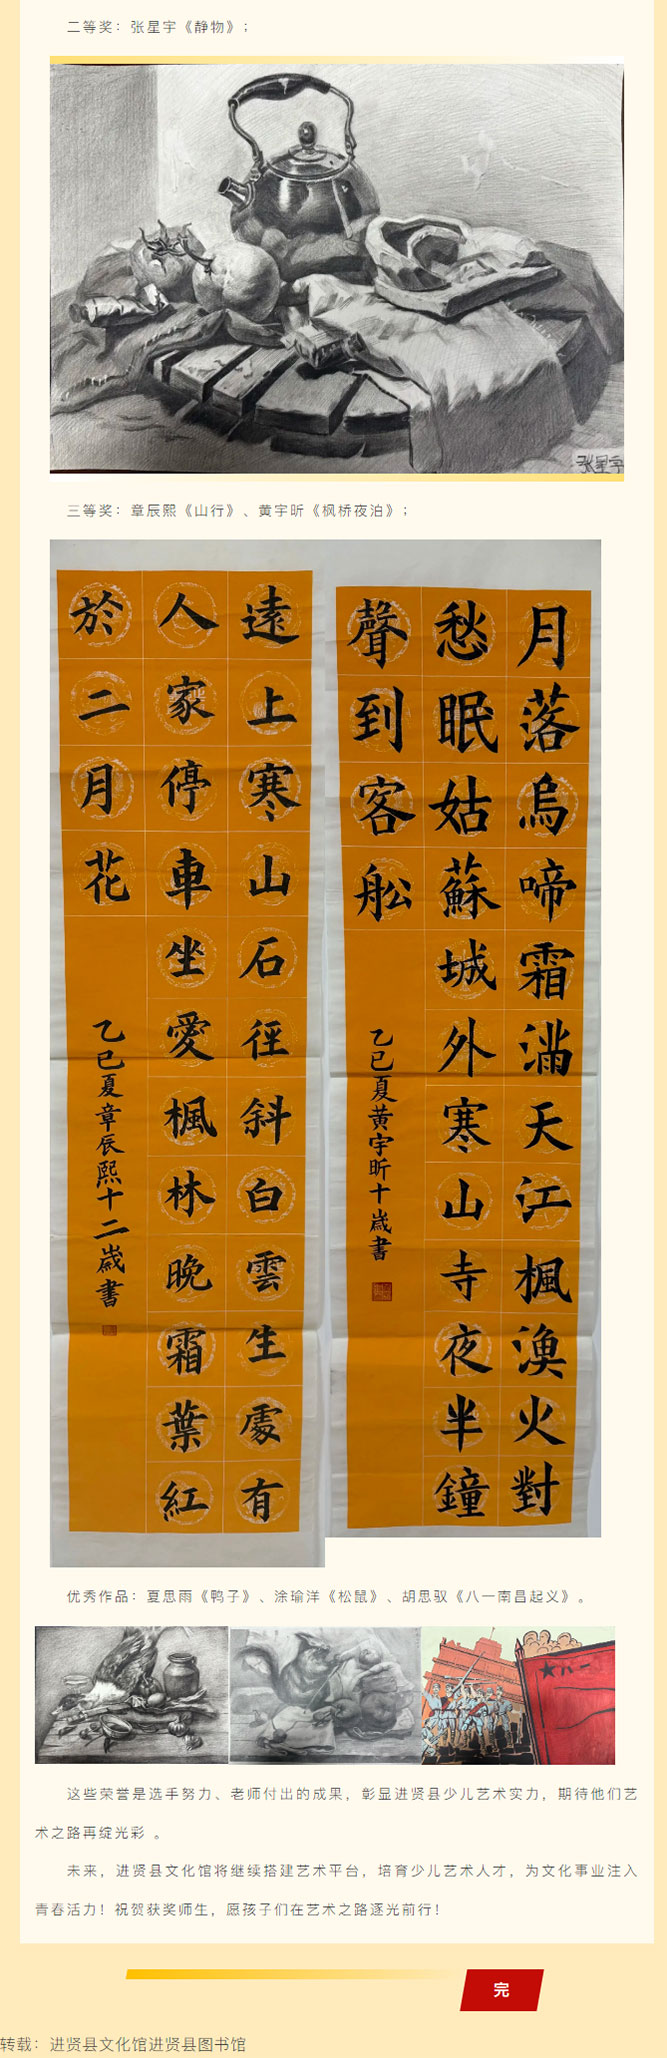 二等奖：张星宇《静物》；
张星宇
三等奖：章辰熙《山行》、黄宇昕《枫桥夜泊》；
遠上寒山石徑斜白雲生處有
人家停車坐愛楓林晚霜葉紅
於二月花
乙巳夏章辰熙十二歲書
月落烏啼霜滿天江楓漁火對
愁眠姑蘇城外寒山寺夜半鐘
聲到客船
乙巳夏黃宇昕十歲書
优秀作品：夏思雨《鸭子》、涂瑜洋《松鼠》、胡思驭《八一南昌起义》。
八一
这些荣誉是选手努力、老师付出的成果，彰显进贤县少儿艺术实力，期待他们艺
术之路再绽光彩 。
未来，进贤县文化馆将继续搭建艺术平台，培育少儿艺术人才，为文化事业注入
青春活力！祝贺获奖师生，愿孩子们在艺术之路逐光前行！
完
转载：进贤县文化馆进贤县图书馆